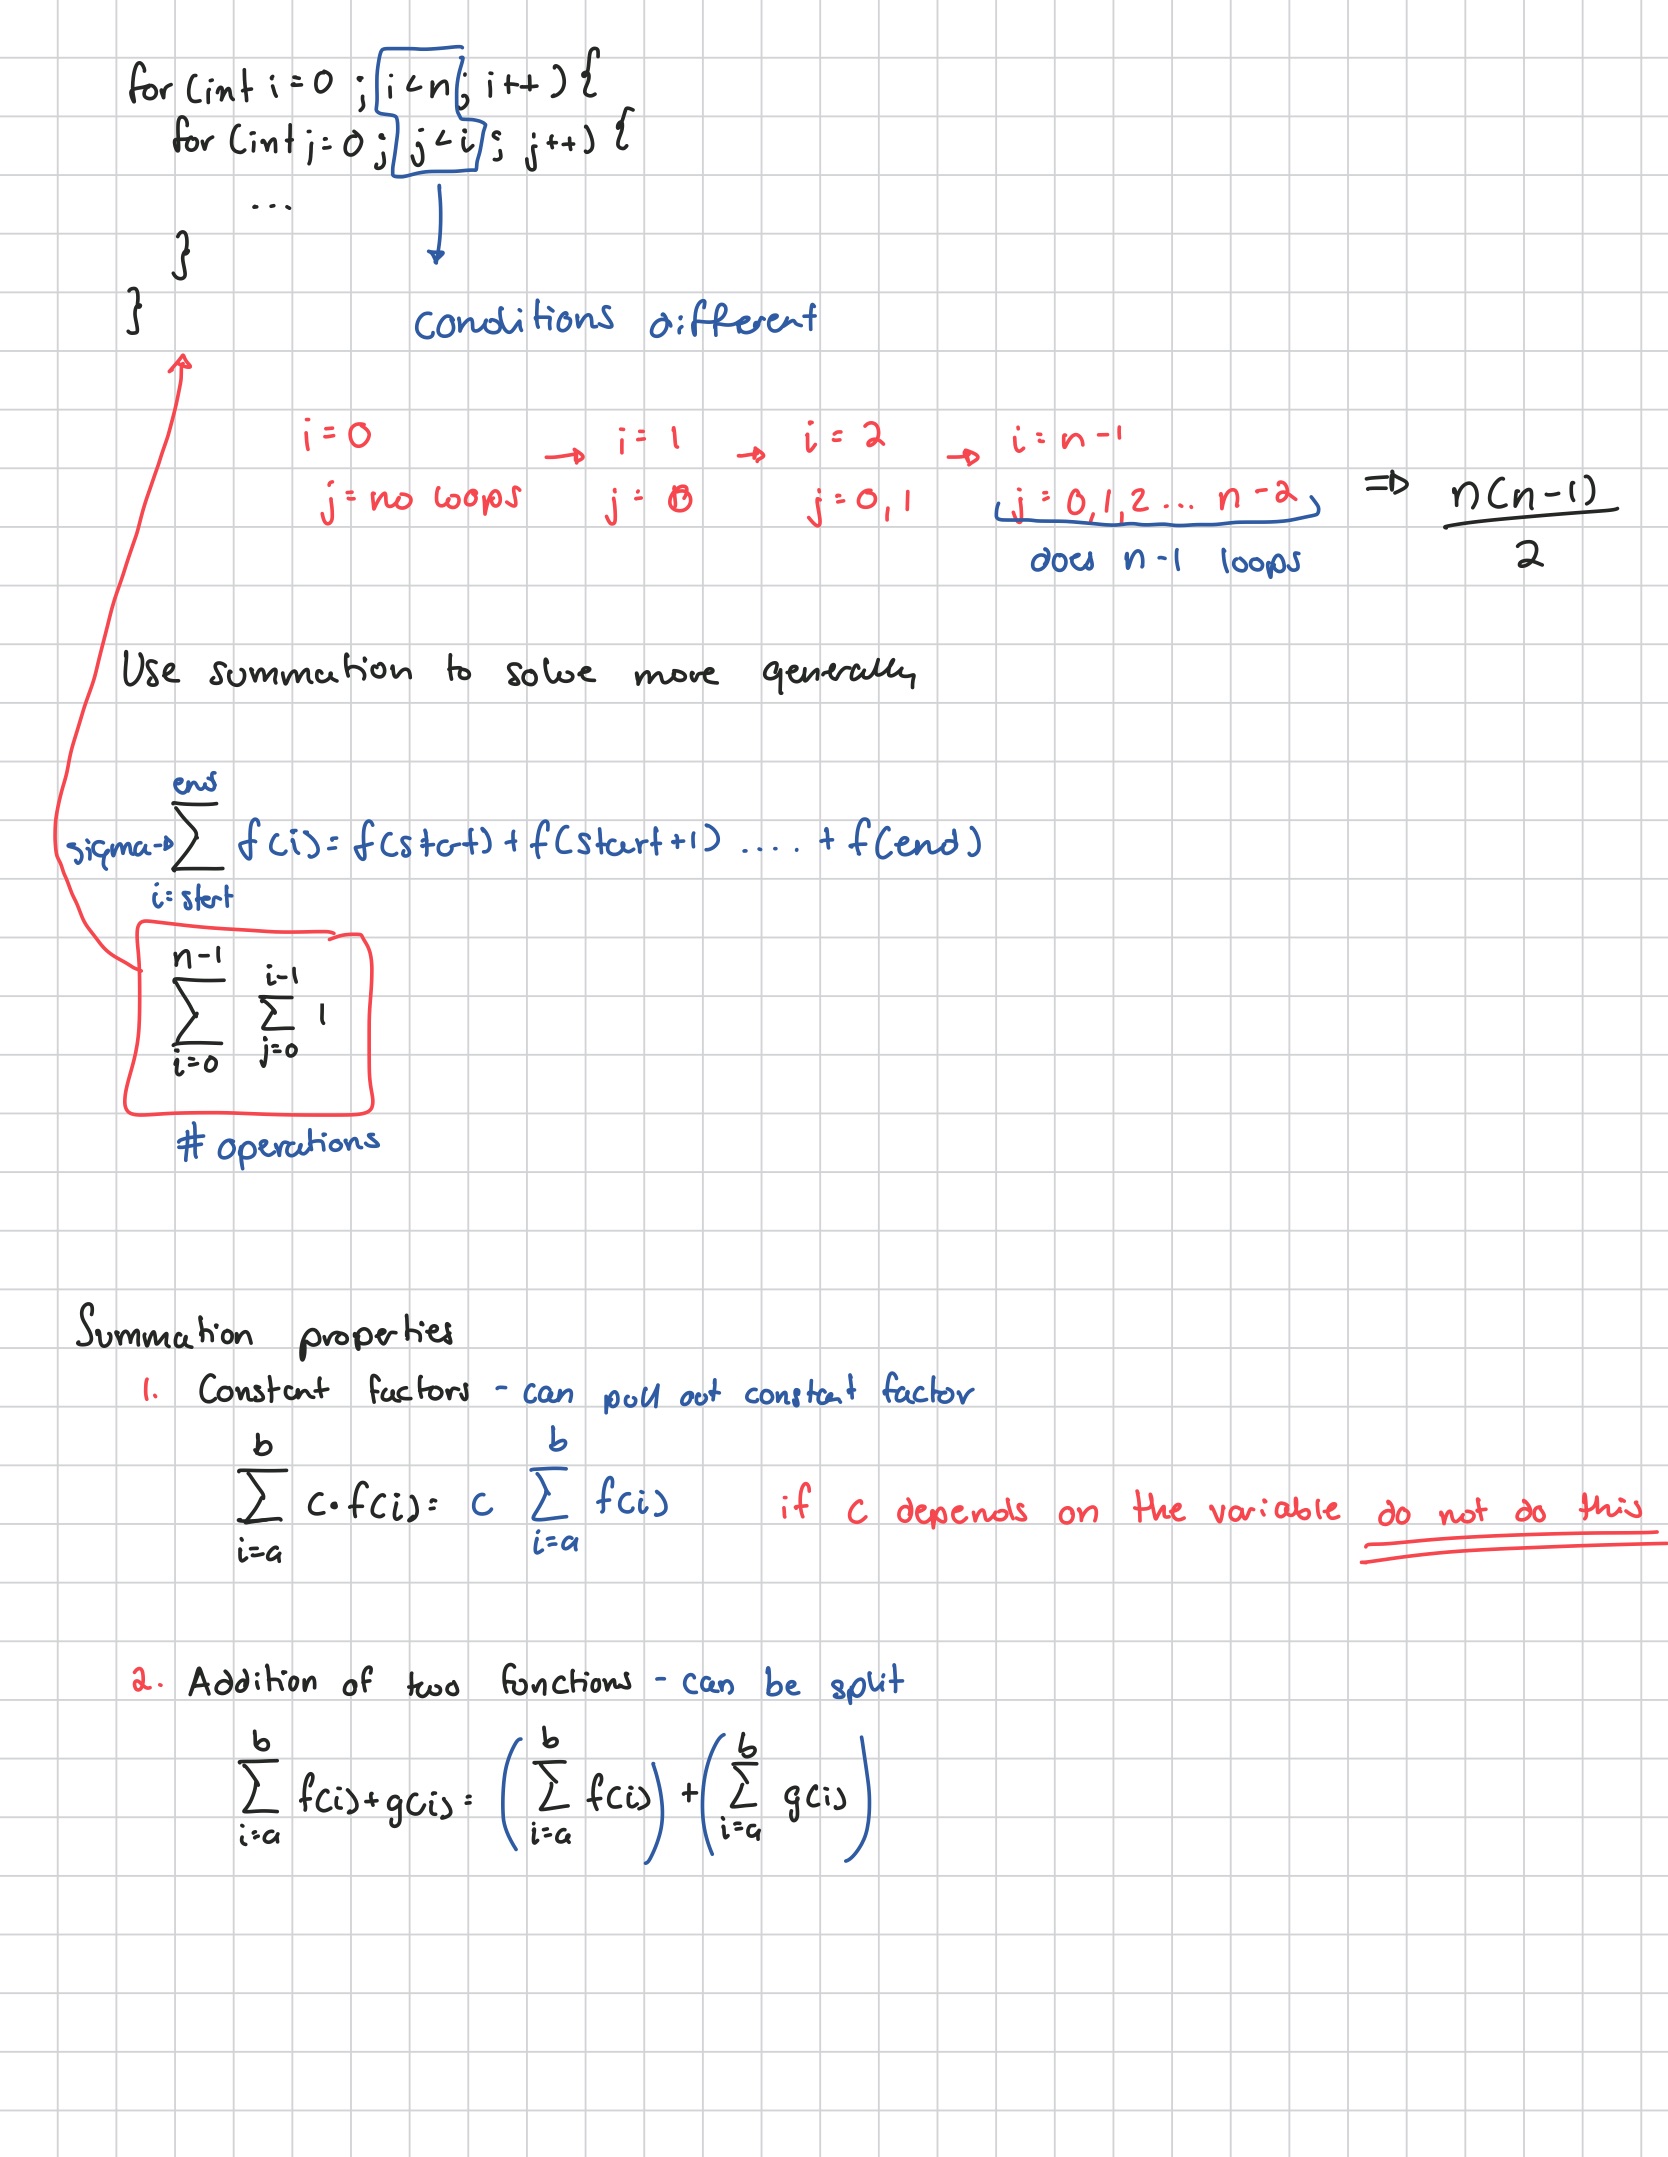 for (int i = 0 ; i < n ; i++ ) {
for (int j = 0 ; j < i ; j++) {
...
}
}
conditions different
i = 0 → i = 1 → i = 2 → i = n-1
j = no loops j = 0 j = 0,1 j = 0,1,2 ... n-2 ⇒ n(n-1)/2
does n-1 loops
Use summation to solve more generally
end
sigma→ ∑ f(i) = f(start) + f(start+1) .... + f(end)
i=start
n-1 i-1
∑ ∑ 1
i=0 j=0
# operations
Summation properties
1. Constant factors - can pull out constant factor
b b
∑ c·f(i) = c ∑ f(i) if c depends on the variable do not do this
i=a i=a
2. Addition of two functions - can be split
b b b
∑ f(i)+g(i) = (∑ f(i)) + (∑ g(i))
i=a i=a i=a